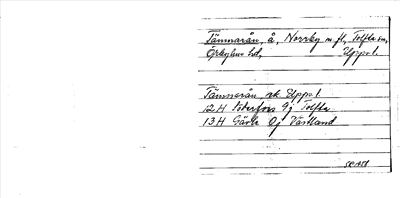 Tämnarån, å, Norrby m. fl., Tolfta sn,
Örbyhus hd, Uppl.
Tämnarån vk Uppl
12H Söderfors 9j Tolfta
13H Gävle 0j Västland